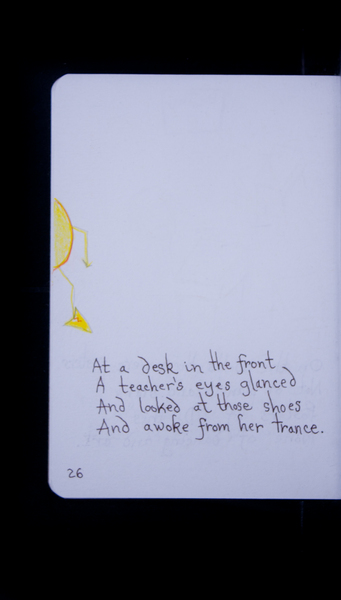 At a desk in the front
A teacher's eyes glanced
And looked at those shoes
And awoke from her trance.
26